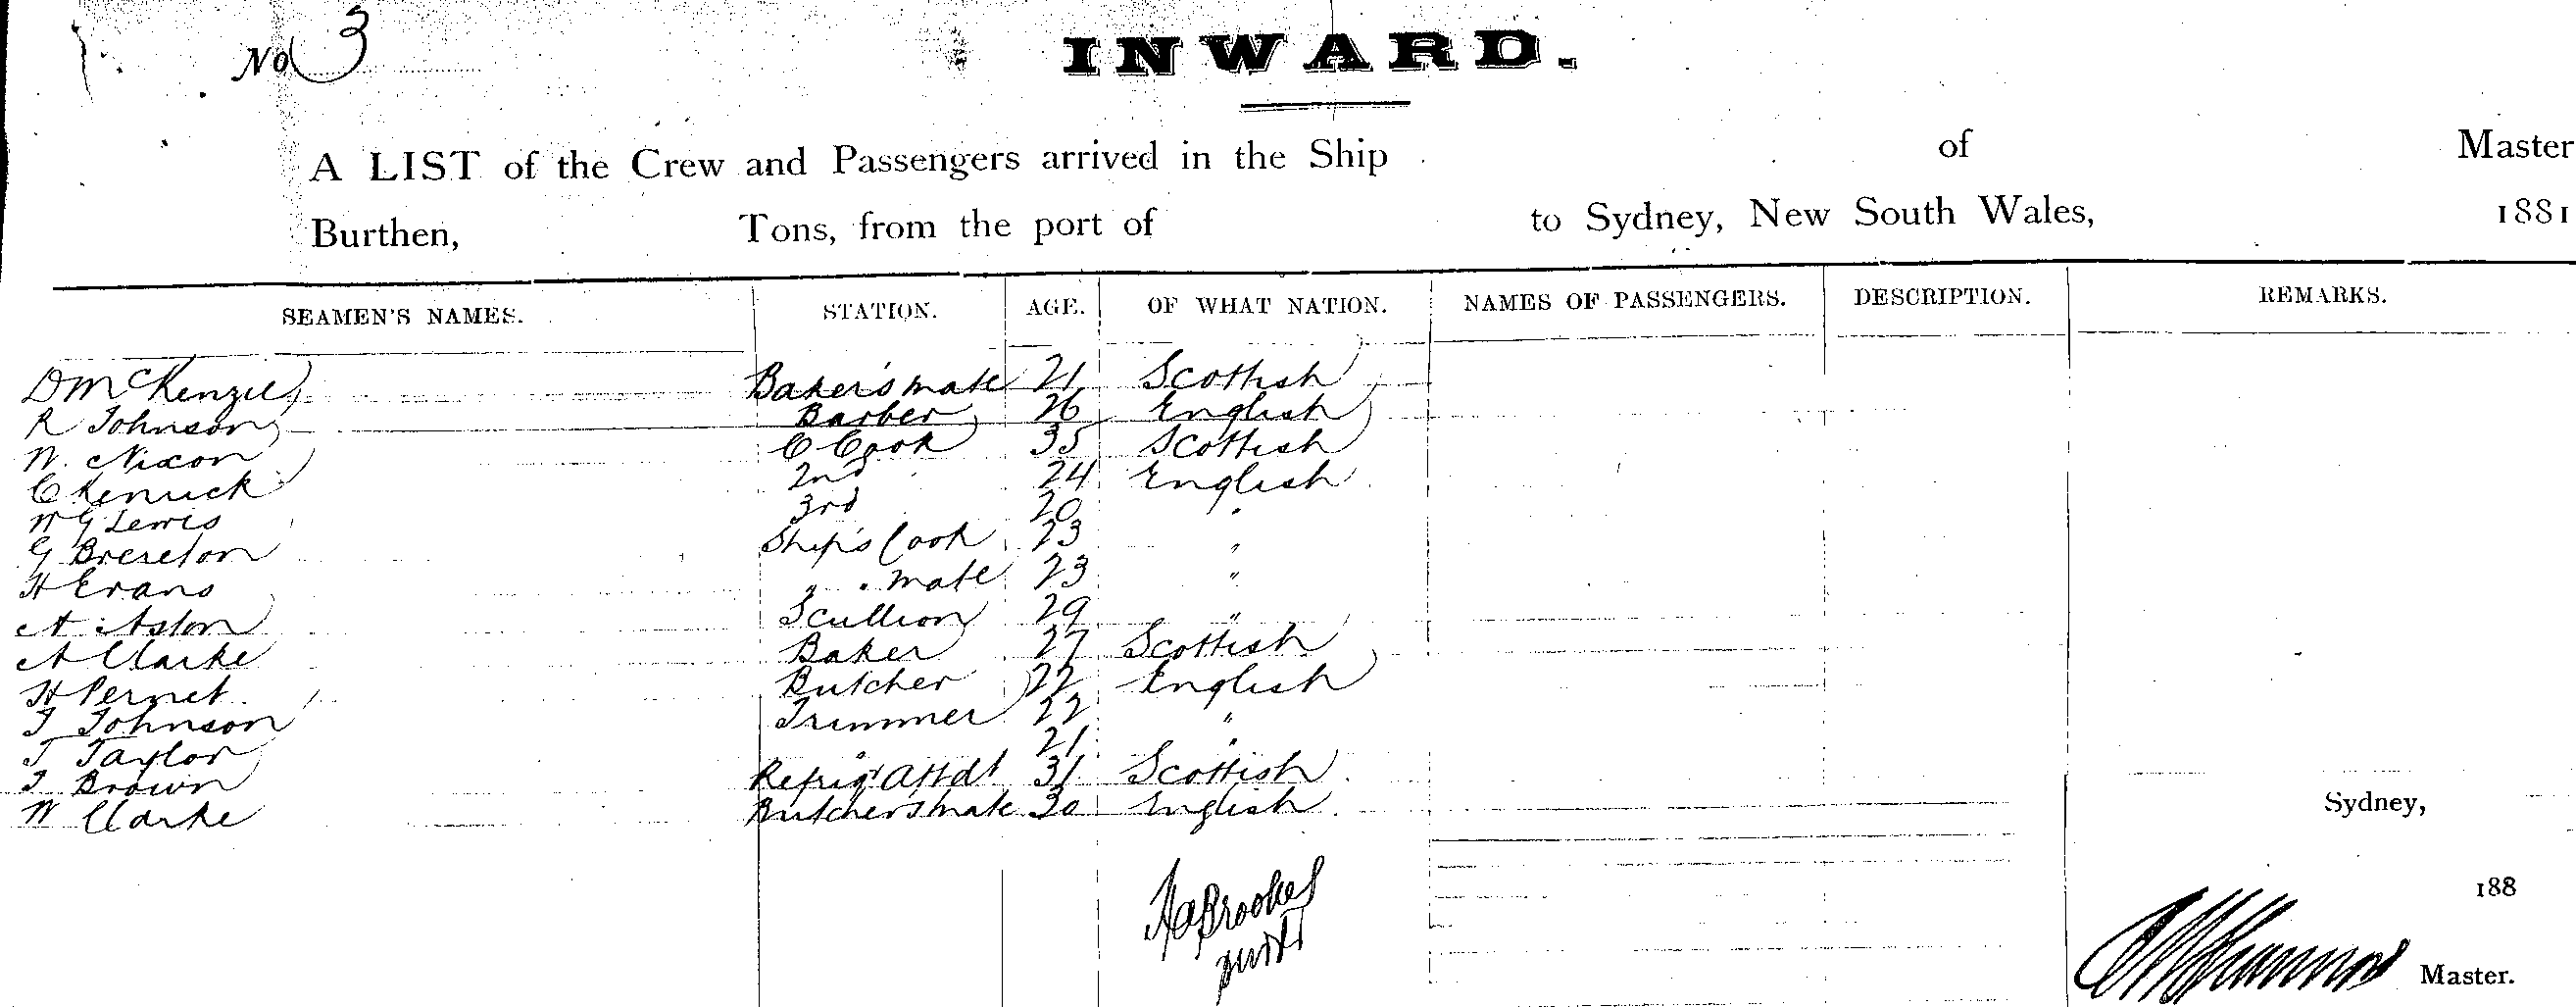 No 3
INWARD.
A LIST of the Crew and Passengers arrived in the Ship of Master
Burthen, Tons, from the port of to Sydney, New South Wales, 1881
SEAMEN'S NAMES. STATION. AGE. OF WHAT NATION. NAMES OF PASSENGERS. DESCRIPTION. REMARKS.
D McKenzie Baker's mate 21 Scottish
R Johnson Barber 26 English
W. Nixon C Cook 35 Scottish
C Kenrick 2nd 24 English
W G Lewis 3rd 20 "
G Brereton Ship's Cook 23 "
H Evans " " mate 23 "
A Aston Scullion 29 "
A Clarke Baker 27 Scottish
H Pernet Butcher 22 English
T Johnson Trimmer 22 "
T Taylor " 21 "
T Brown Refrigt Attdt 31 Scottish
W Clarke Butchers mate 30 English
Sydney,
188
Brookes
Master.